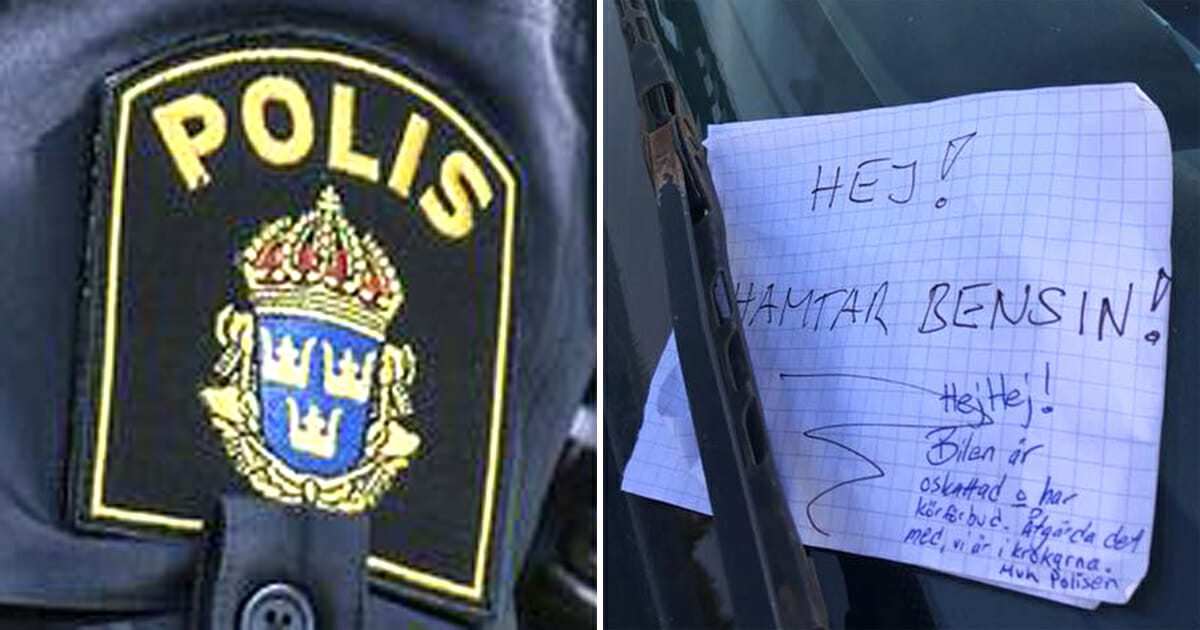 POLIS
HEJ!
HAMTAR BENSIN!
HejHej!
Bilen är
oskattad o har
körförbud. Åtgärda det
med, vi är i krokarna.
Mvh Polisen